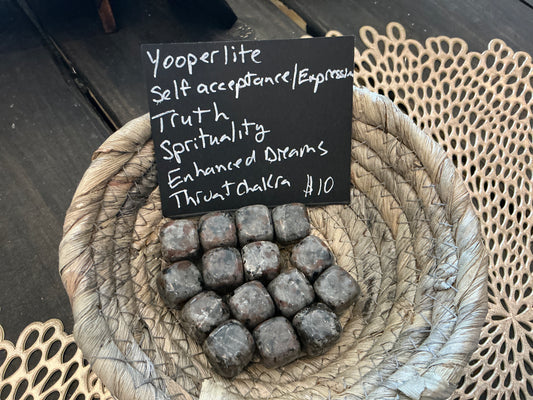 Yooperlite
Self acceptance/Expression
Truth
Sprituality
Enhanced Dreams
Throat Chakra $10